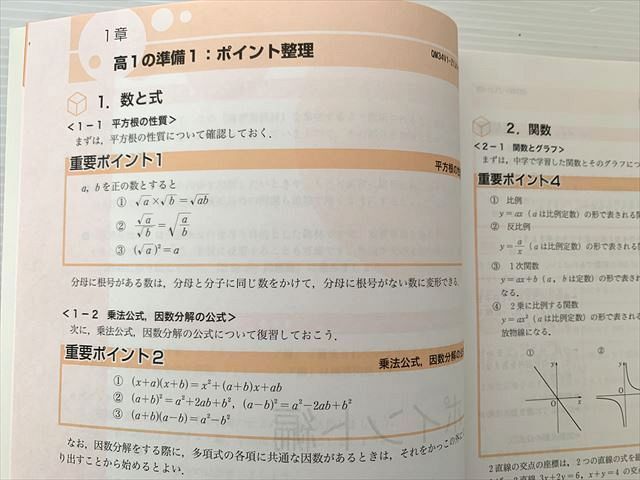 1章
高1の準備1：ポイント整理
1. 数と式
<1-1 平方根の性質>
まずは，平方根の性質について確認しておく．
重要ポイント1
平方根の性
a, bを正の数とすると
① √a×√b=√ab
② √a/√b=√(a/b)
③ (√a)²=a
分母に根号がある数は，分母と分子に同じ数をかけて，分母に根号がない数に変形できる．
<1-2 乗法公式，因数分解の公式>
次に，乗法公式，因数分解の公式について復習しておこう．
重要ポイント2
乗法公式，因数分解の公
① (x+a)(x+b)=x²+(a+b)x+ab
② (a+b)²=a²+2ab+b², (a-b)²=a²-2ab+b²
③ (a+b)(a-b)=a²-b²
なお，因数分解をする際に，多項式の各項に共通な因数があるときは，それをかっこの外に
り出すことから始めるとよい．
2. 関数
<2-1 関数とグラフ>
まずは，中学で学習した関数とそのグラフにつ
重要ポイント4
① 比例
y=ax (aは比例定数) の形で表される関
② 反比例
y=a/x (aは比例定数) の形で表される
③ 1次関数
y=ax+b (a, bは定数) の形で表され
なる．
④ 2乗に比例する関数
y=ax² (aは比例定数) の形で表され
放物線になる．
① ②
y
O
x
y
O
2直線の交点の座標は，2つの直線の式を
直線 3x+2y=6, x+y=4 の交